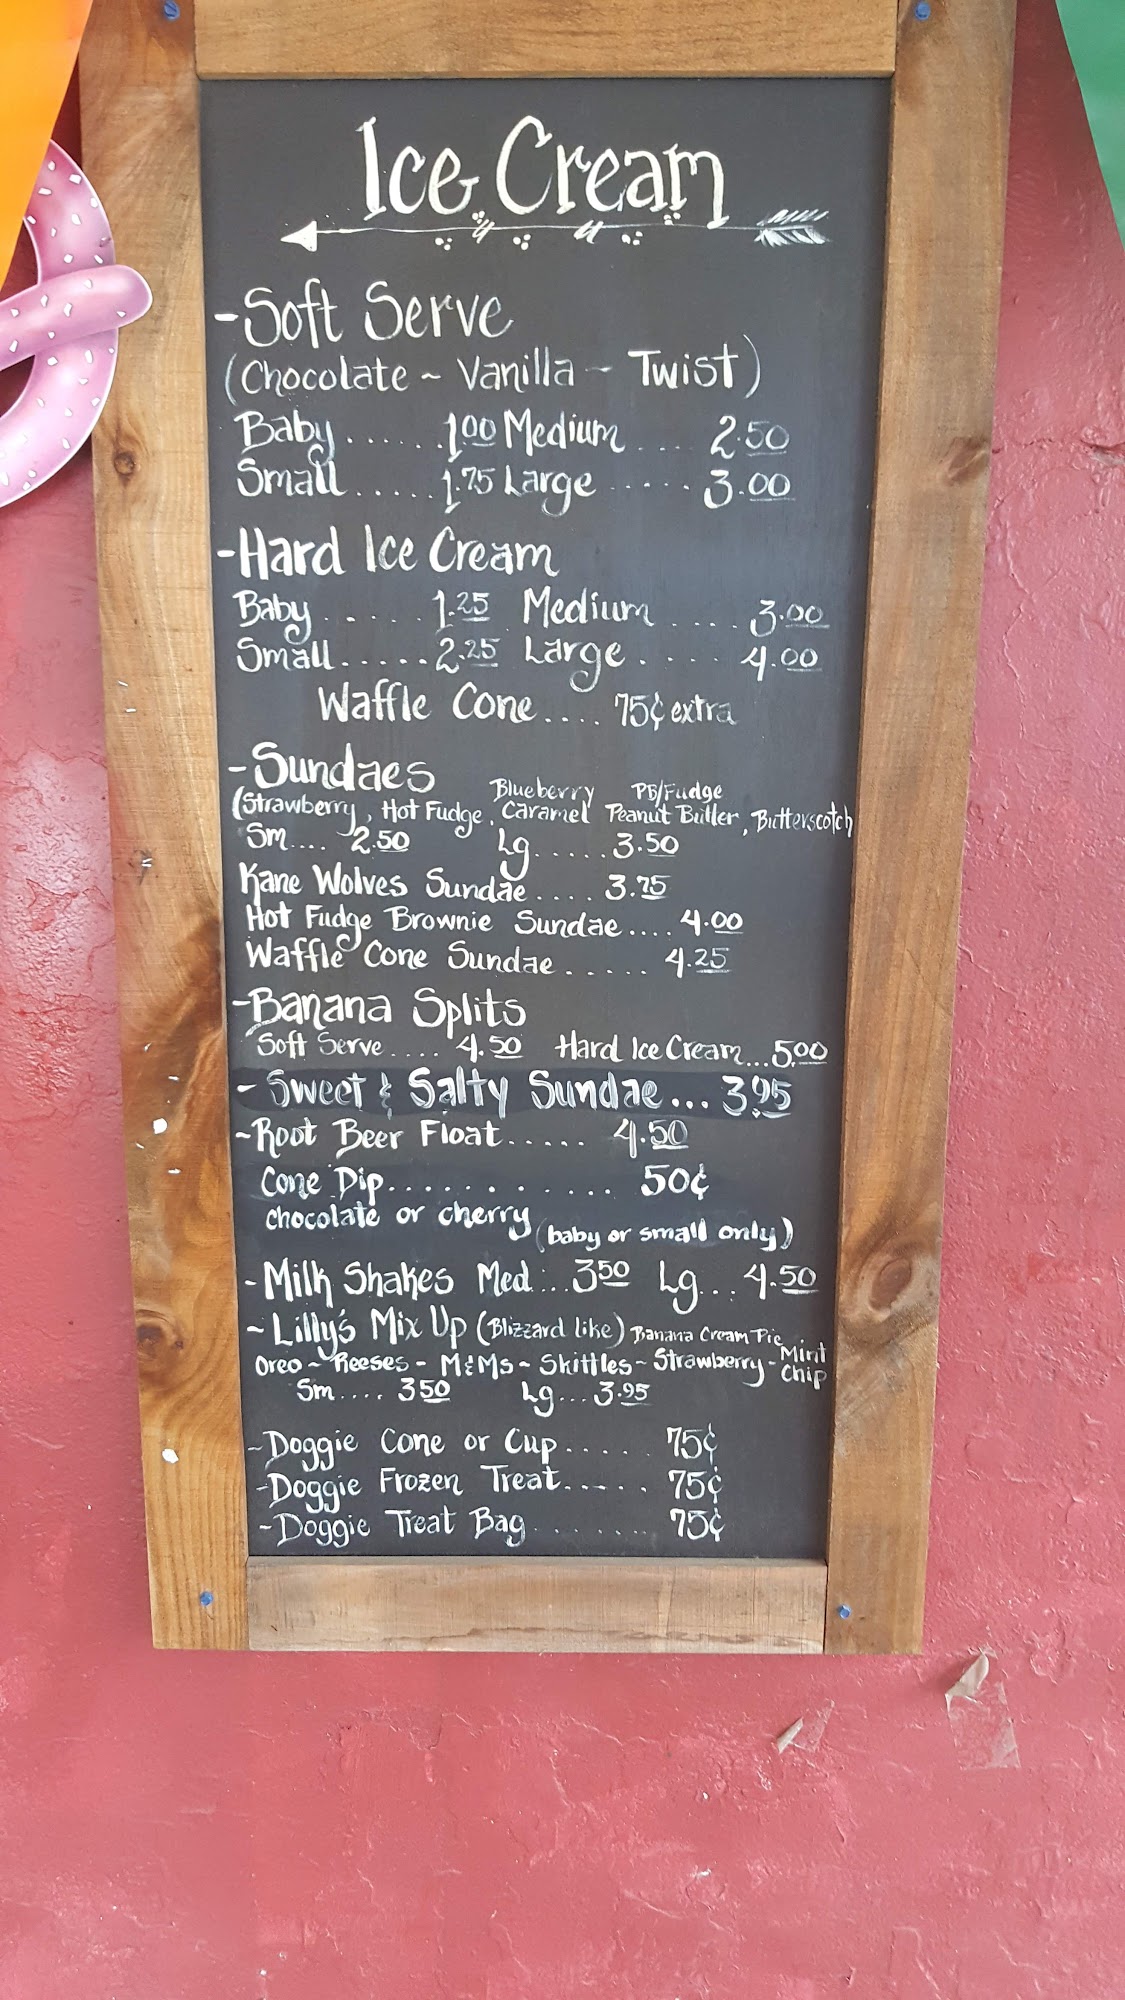 Ice Cream
-Soft Serve
(Chocolate ~ Vanilla ~ Twist)
Baby......1.00 Medium.... 2.50
Small.....1.75 Large ..... 3.00
-Hard Ice Cream
Baby...... 1.25 Medium .... 3.00
Small.....2.25 Large..... 4.00
Waffle Cone.... 75¢ extra
-Sundaes
Blueberry PB/Fudge
(Strawberry, Hot Fudge, Caramel Peanut Butter, Butterscotch
Sm.... 2.50 Lg.....3.50
Kane Wolves Sundae.... 3.75
Hot Fudge Brownie Sundae.... 4.00
Waffle Cone Sundae...... 4.25
-Banana Splits
Soft Serve.... 4.50 Hard Ice Cream...5.00
- Sweet & Salty Sundae... 3.95
~Root Beer Float..... 4.50
Cone Dip............ 50¢
chocolate or cherry (baby or small only)
-Milk Shakes Med...3.50 Lg... 4.50
~ Lilly's Mix Up (Blizzard like) Banana Cream Pie
Oreo ~ Reeses - M&Ms ~ Skittles ~ Strawberry - Mint Chip
Sm.... 3.50 Lg...3.95
~Doggie Cone or Cup..... 75¢
-Doggie Frozen Treat..... 75¢
~Doggie Treat Bag........ 75¢